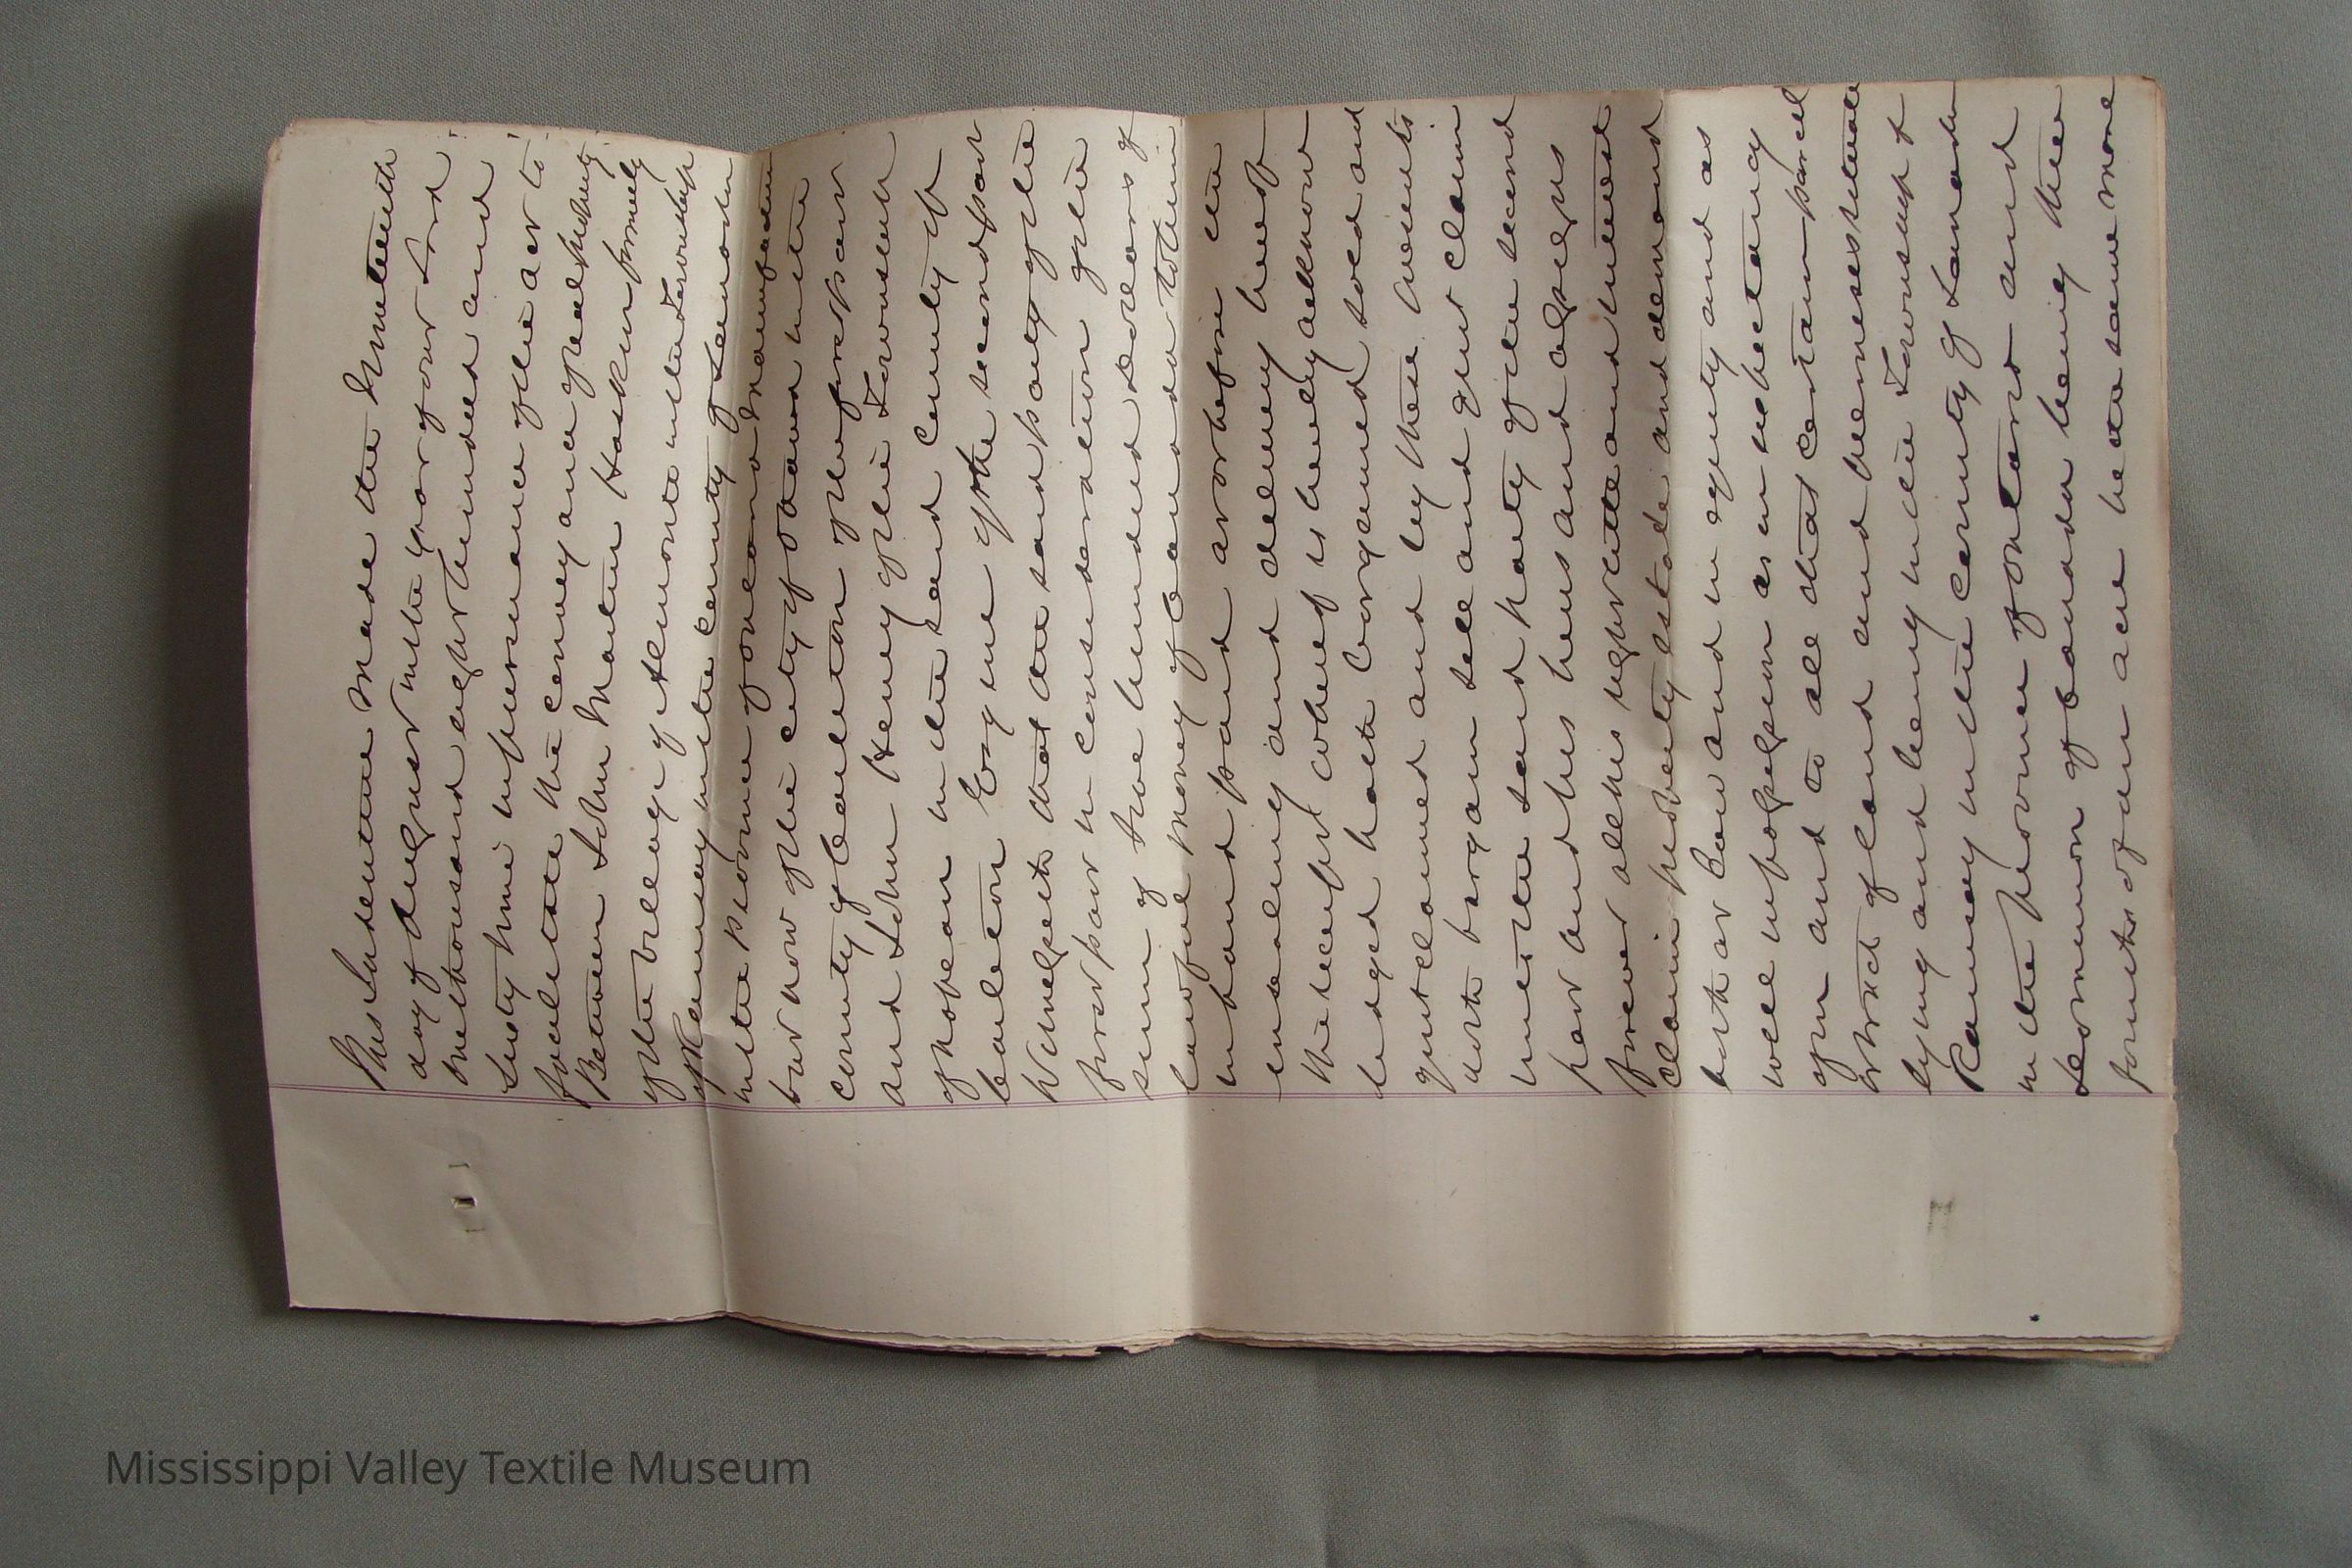 This Indenture made the nineteenth
day of August in the year of our Lord
one thousand eight hundred and
Sixty nine in pursuance of the act to
facilitate the conveyance of real property
Between John Martin Haskin formerly
of the village of Almonte in the Township
of Ramsay in the County of Lanark
in the Province of Ontario Manufacturer
but now of the city of Ottawa in the
County of Carleton of the first part
and John Henry of the Township
of Nepean in the said County of
Carleton Esquire of the second part
Witnesseth that the said party of the
first part in consideration of the
sum of five hundred Dollars of
lawful money of Canada to him
in hand paid at or before the
ensealing and delivery hereof
the receipt whereof is hereby acknow
ledged hath bargained sold and
quit claimed and by these presents
doth bargain sell and quit claim
unto the said party of the second
part and his heirs and assigns
forever all his right title and interest
claim property estate and demand
both at law and in equity and as
well in possession as in expectancy
of in and to all that certain parcel
tract of land and premises situate
lying and being in the Township of
Ramsay in the County of Lanark
in the Province of Ontario and
Dominion of Canada being three
fourths of an acre be the same more
Mississippi Valley Textile Museum